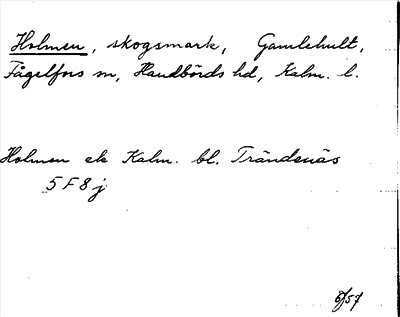 Holmen, skogsmark, Gamlehult,
Fågelfors sn, Handbörds hd, Kalm. l.
Holmen ek Kalm. bl. Trändenäs
5 F 8 j